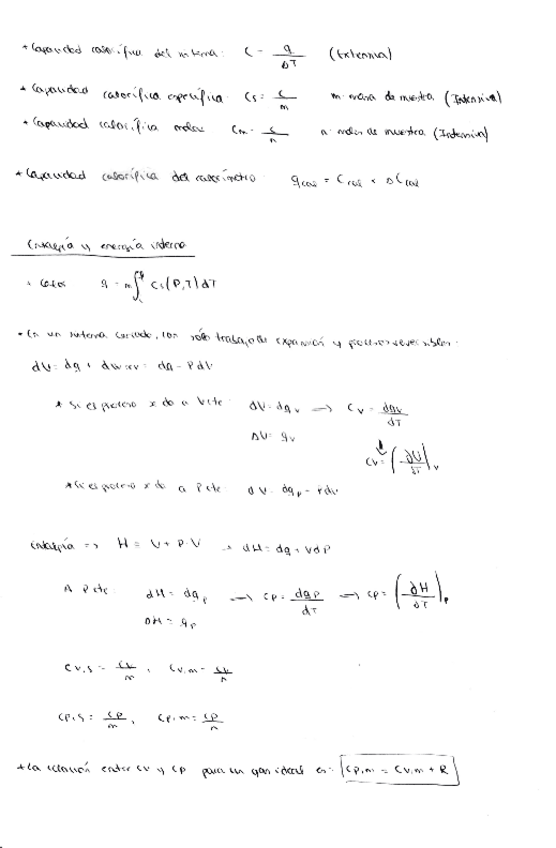 * Capacidad calorífica del sistema: C = q/ΔT (Extensiva)
* Capacidad calorífica específica: Cs = C/m m: masa de muestra (Intensiva)
* Capacidad calorífica molar Cm = C/n n: moles de muestra (Intensiva)
* Capacidad calorífica del calorímetro: qcal = Ccal × Δ cal
Entalpía y energía interna
* Calor q = m∫ Cs(P,T)dT
* En un sistema cerrado, con sólo trabajo de expansión y procesos reversibles:
dU = dq + dw = dq - PdV
* Si es proceso a V cte: dU = dqv → Cv = dqv/dT
ΔU = qv
Cv = (∂U/∂T)v
* Si es proceso a P cte: dU = dqp - PdV
Entalpía => H = U + P·V → dH = dq + VdP
A P cte: dH = dqp → Cp = dqp/dT → Cp = (∂H/∂T)p
ΔH = qp
Cv,s = Cv/m , Cv,m = Cv/n
Cp,s = Cp/m , Cp,m = Cp/n
* La relación entre Cv y Cp para un gas ideal es: Cp,m = Cv,m + R